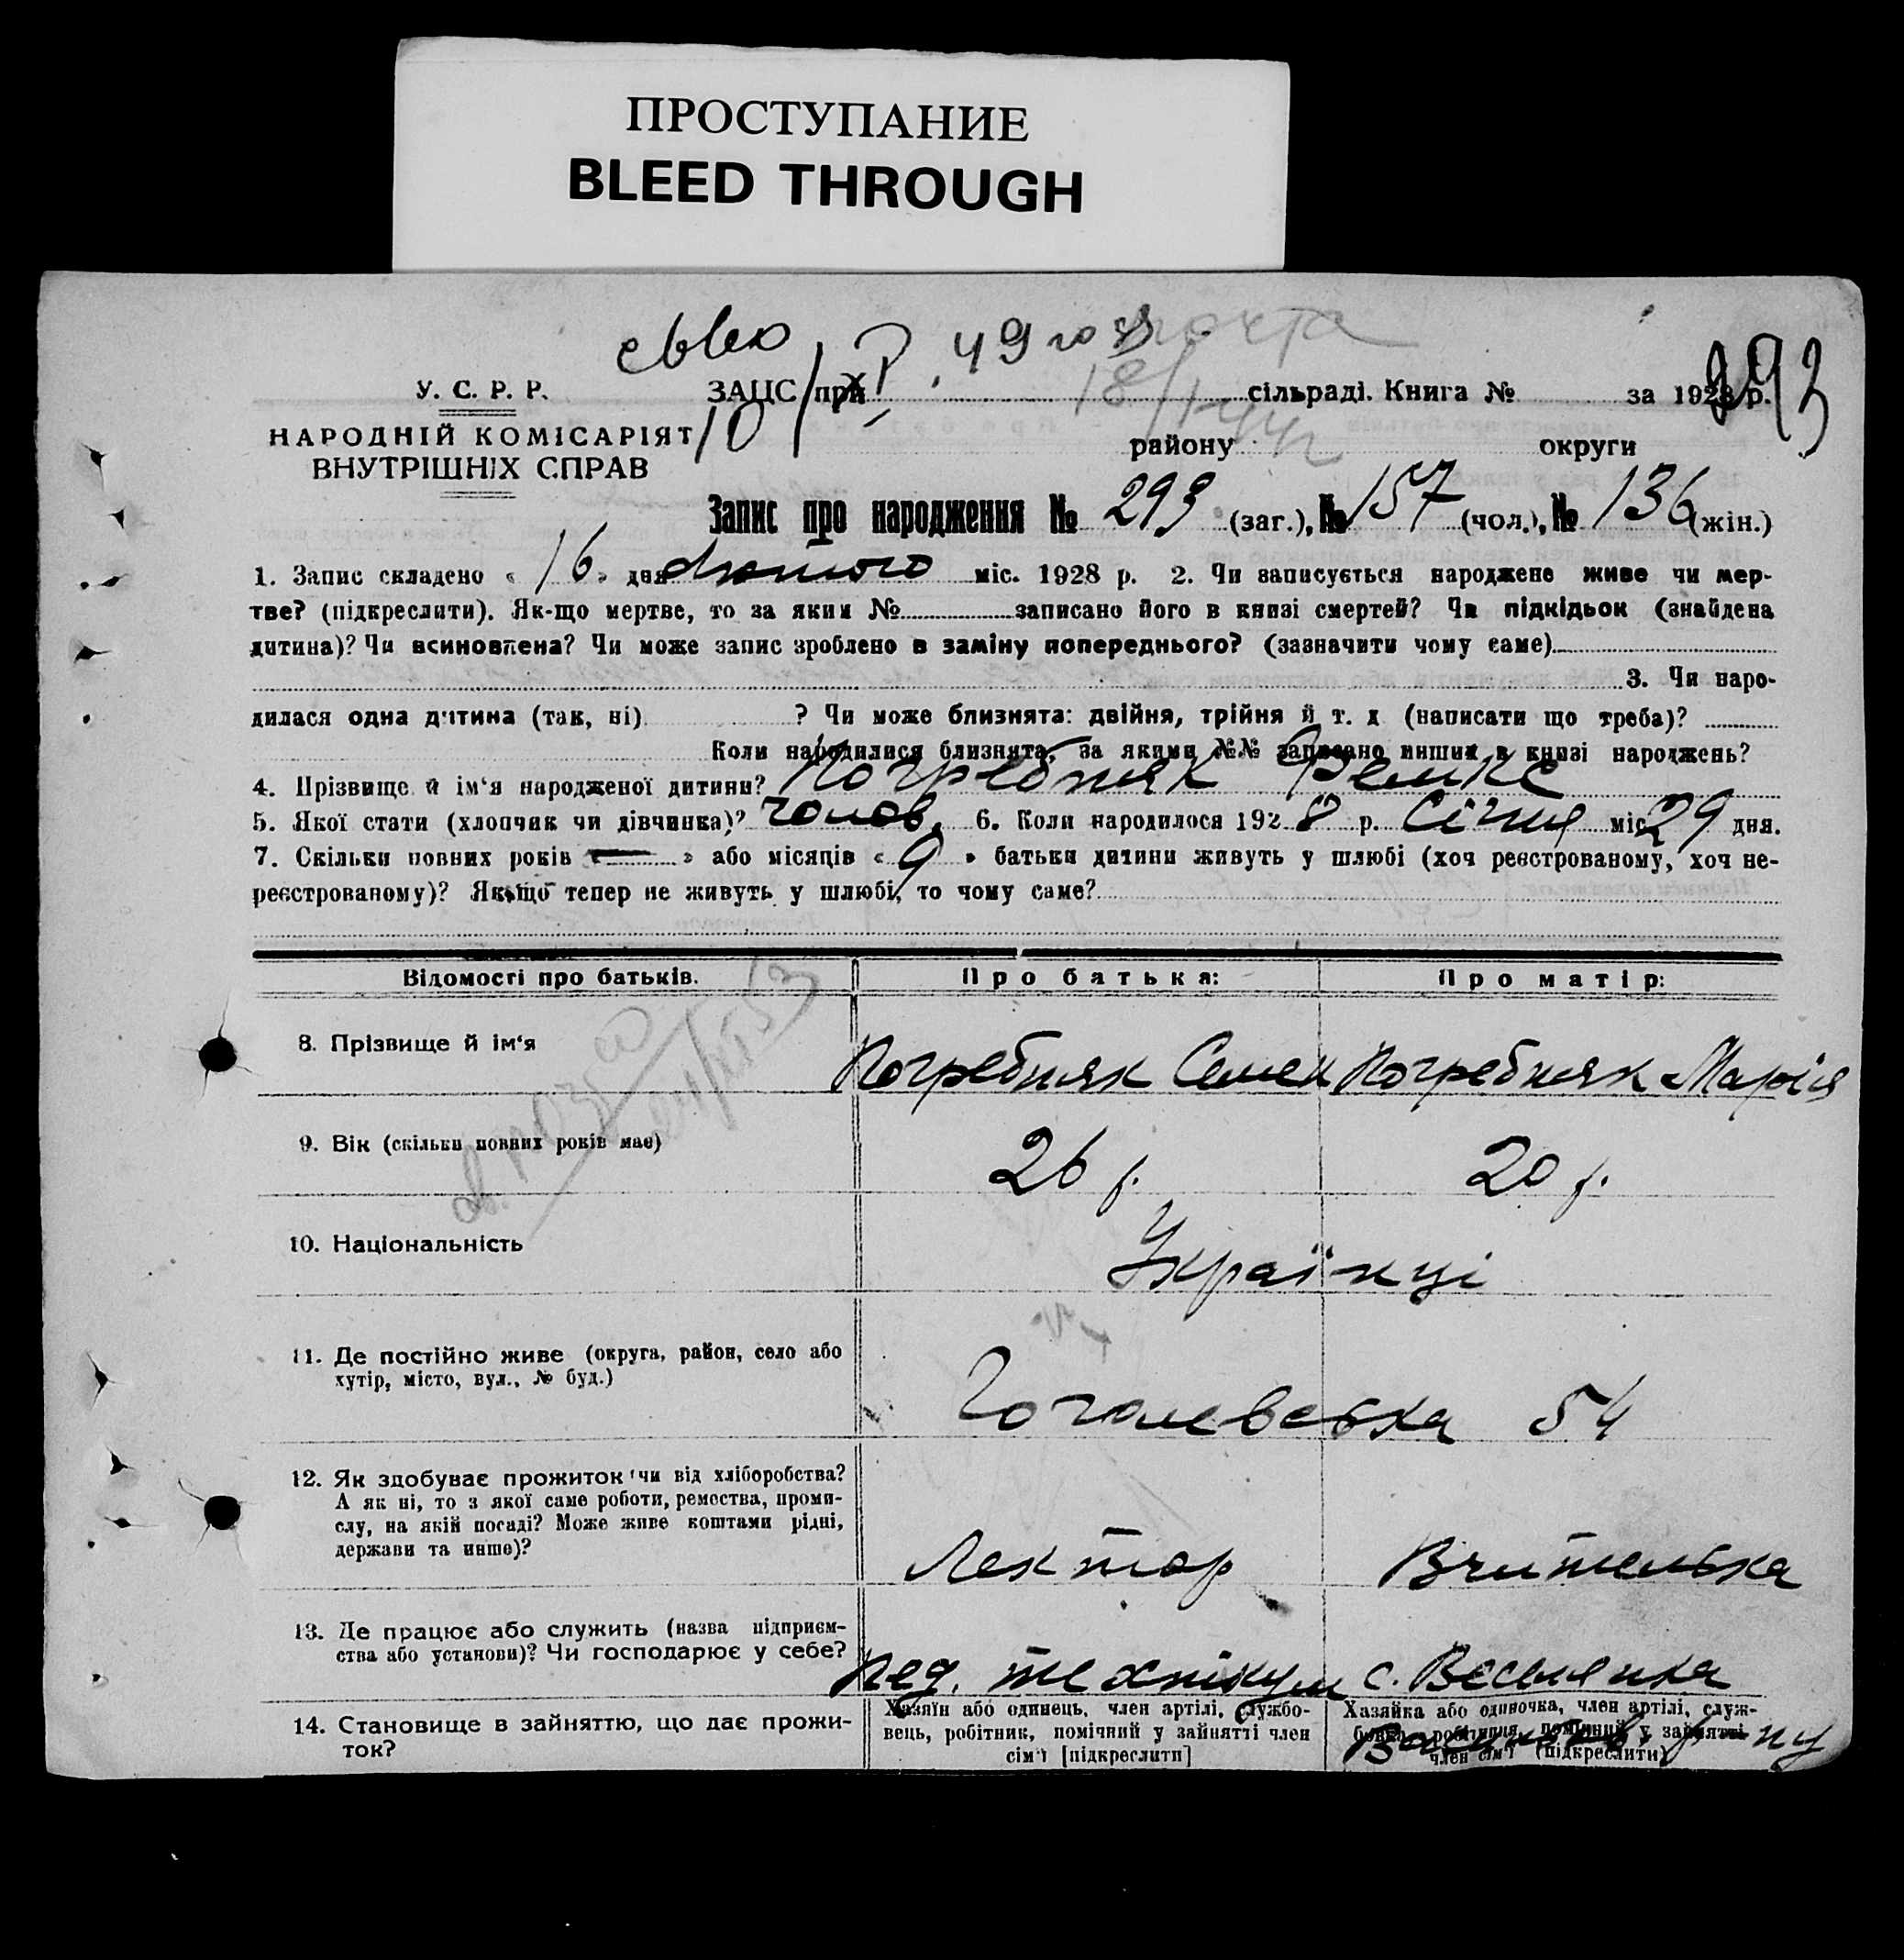 ПРОСТУПАНИЕ
BLEED THROUGH
49
293
У. С. Р. Р. ЗАЦС при сільраді. Книга № за 1928 р.
НАРОДНІЙ КОМІСАРІЯТ
ВНУТРІШНІХ СПРАВ
району округи
Запис про народження № 293 (заг.), № 157 (чол.), № 136 (жін.)
1. Запис складено « 16 » дня лютого міс. 1928 р. 2. Чи записується народжене живе чи мер-
тве? (підкреслити). Як-що мертве, то за яким № записано його в книзі смертей? Чи підкідьок (знайдена
дитина)? Чи всиновлена? Чи може запис зроблено в заміну попереднього? (зазначити чому саме)
3. Чи наро-
дилася одна дитина (так, ні) ? Чи може близнята: двійня, трійня й т. д (написати що треба)?
Коли народилися близнята, за якими №№ записано инших в книзі народжень?
4. Прізвище й ім'я народженої дитини? Погребняк
5. Якої стати (хлопчик чи дівчинка)? чолов. 6. Коли народилося 1928 р. Січня міс 29 дня.
7. Скільки повних років « — » або місяців « 9 » батьки дитини живуть у шлюбі (хоч реєстрованому, хоч не-
реєстрованому)? Як-що тепер не живуть у шлюбі, то чому саме?
Відомості про батьків. Про батька: Про матір:
8. Прізвище й ім'я Погребняк Семен Погребняк Марія
9. Вік (скільки повних років має) 26 р. 20 р.
10. Національність Українці
11. Де постійно живе (округа, район, село або
хутір, місто, вул., № буд.) Гоголевська 54
12. Як здобуває прожиток чи від хліборобства?
А як ні, то з якої саме роботи, ремества, проми-
слу, на якій посаді? Може живе коштами рідні,
держави та инше)? Лектор Вчителька
13. Де працює або служить (назва підприєм-
ства або установи)? Чи господарює у себе? Пед. технікум с. Веселянка
14. Становище в зайняттю, що дає прожи-
ток?
Хазяїн або одинець, член артілі, службо-
вець, робітник, помічний у зайнятті член
сім'ї [підкреслити]
Хазяйка або одиночка, член артілі, служ-
бовка, робітниця, помічний у зайнятті
член сім'ї (підкреслити)